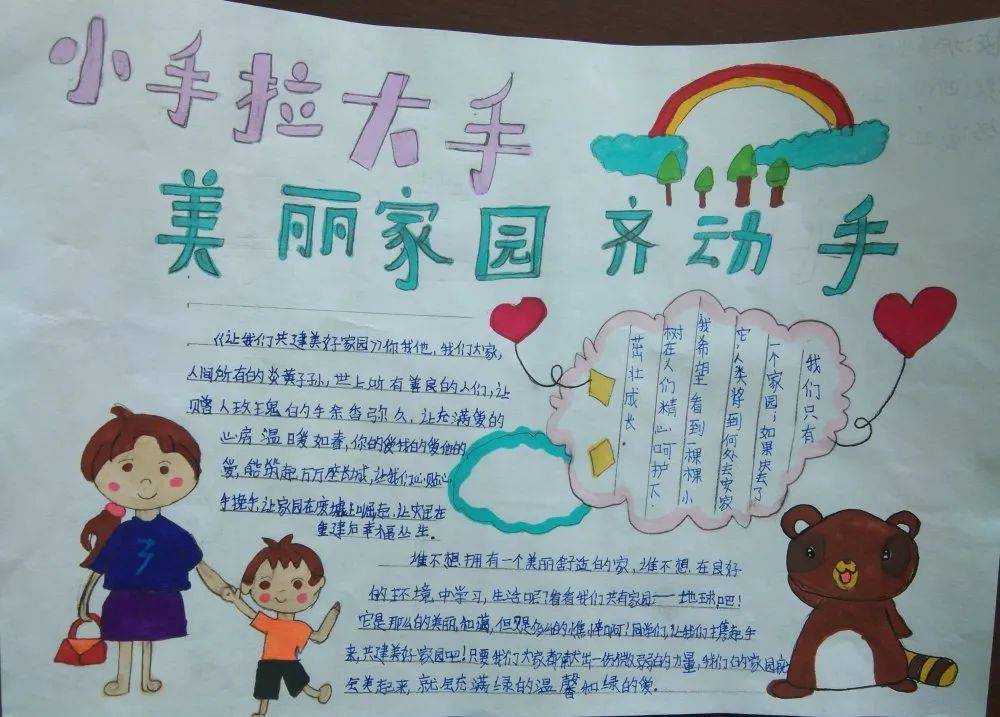 小手拉大手
美丽家园齐动手
《让我们共建美好家园》你我他,我们大家,
人间所有的炎黄子孙,世上所有善良的人们,让
赠人玫瑰的手余香弥久,让充满爱的
心房温暖如春,你的爱我的爱他的
爱,能筑起万万座长城,让我们心贴心
手挽手,让家园在废墟上崛起,让灾区在
重建后幸福丛生。
我们只有
一个家园,如果失去了
它,人类将到何处去安家
我希望看到一棵棵小
树在人们精心呵护下
茁壮成长.
谁不想拥有一个美丽舒适的家,谁不想在良好
的环境中学习,生活呢?看看我们共有家园——地球吧!
它是那么的美丽,但是多么的憔悴啊!同学们,让我们携起手
来,共建美好家园吧!只要我们大家都献出一份微弱的力量,我们的家园就
会美起来,就是充满绿的温馨和绿的爱.